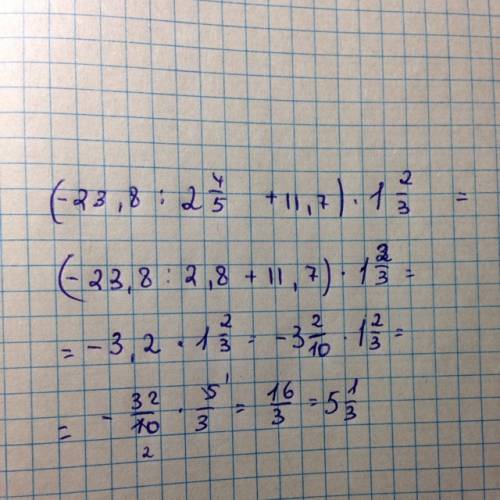 (-23,8 : 2 4/5 +11,7) · 1 2/3 =
(-23,8 : 2,8 + 11,7) · 1 2/3 =
= -3,2 · 1 2/3 = -3 2/10 · 1 2/3 =
= - 32/10 2 · 5/3 1 = 16/3 = 5 1/3